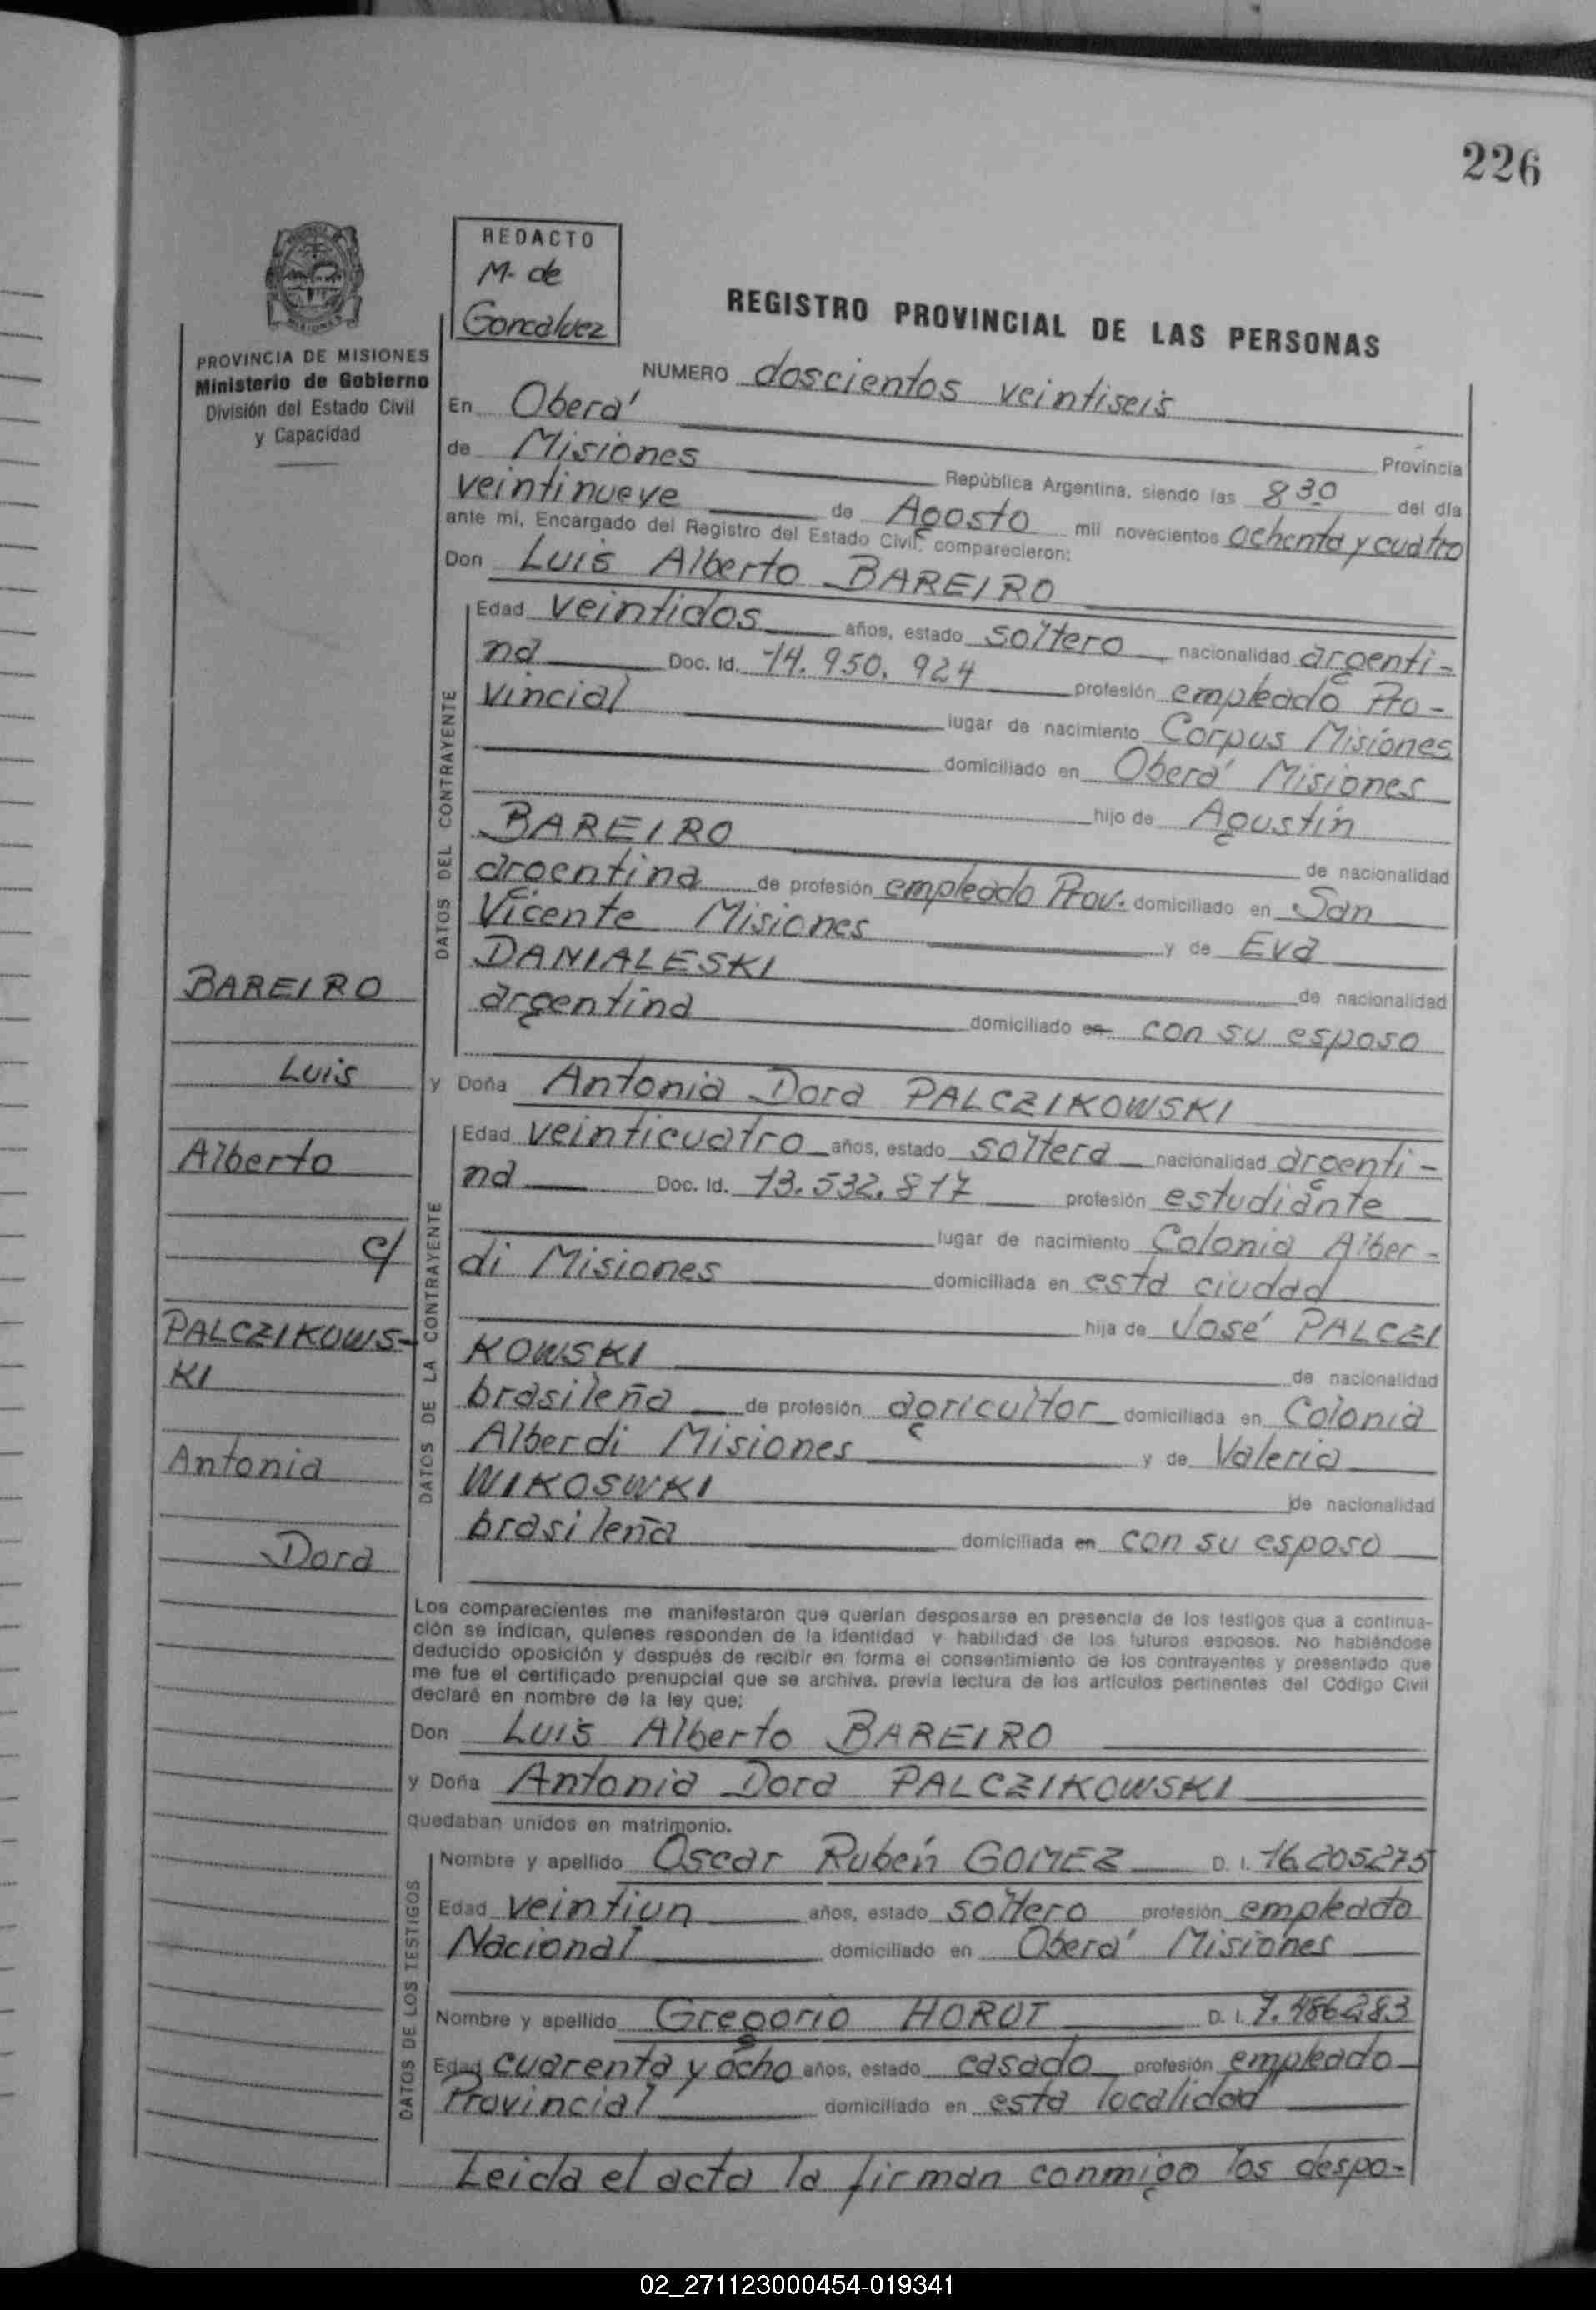 226
REDACTO
M. de
Goncalvez
PROVINCIA DE MISIONES
Ministerio de Gobierno
División del Estado Civil
y Capacidad
REGISTRO PROVINCIAL DE LAS PERSONAS
NUMERO doscientos veintiseis
En Oberá
Provincia
de Misiones República Argentina, siendo las 8 30 del día
veintinueve de Agosto mil novecientos ochenta y cuatro
ante mi, Encargado del Registro del Estado Civil, comparecieron:
Don Luis Alberto BAREIRO
DATOS DEL CONTRAYENTE
Edad veintidos años, estado soltero nacionalidad argenti-
na Doc. Id. 14.950.924 profesión empleado Pro-
vincial lugar de nacimiento Corpus Misiones
domiciliado en Oberá Misiones
hijo de Agustín
BAREIRO de nacionalidad
argentina de profesión empleado Prov. domiciliado en San
Vicente Misiones y de Eva
DANIALESKI de nacionalidad
argentina domiciliado en con su esposo
y Doña Antonia Dora PALCZIKOWSKI
DATOS DE LA CONTRAYENTE
Edad veinticuatro años, estado soltera nacionalidad argenti-
na Doc. Id. 13.532.817 profesión estudiante
lugar de nacimiento Colonia Alber-
di Misiones domiciliada en esta ciudad
hija de José PALCZI
KOWSKI de nacionalidad
brasileña de profesión agricultor domiciliada en Colonia
Alberdi Misiones y de Valeria
WIKOSWKI de nacionalidad
brasileña domiciliada en con su esposo
BAREIRO
Luis
Alberto
c/
PALCZIKOWS-
KI
Antonia
Dora
Los comparecientes me manifestaron que querían desposarse en presencia de los testigos que a continua-
ción se indican, quienes responden de la identidad y habilidad de los futuros esposos. No habiéndose
deducido oposición y después de recibir en forma el consentimiento de los contrayentes y presentado que
me fue el certificado prenupcial que se archiva, previa lectura de los artículos pertinentes del Código Civil
declaré en nombre de la ley que:
Don Luis Alberto BAREIRO
y Doña Antonia Dora PALCZIKOWSKI
quedaban unidos en matrimonio.
DATOS DE LOS TESTIGOS
Nombre y apellido Oscar Rubén GOMEZ D. I. 16.205275
Edad veintiun años, estado soltero profesión empleado
Nacional domiciliado en Oberá Misiones
Nombre y apellido Gregorio HOROT D. I. 7.486283
Edad cuarenta y ocho años, estado casado profesión empleado
Provincial domiciliado en esta localidad
Leida el acta la firman conmigo los despo-
02_271123000454-019341